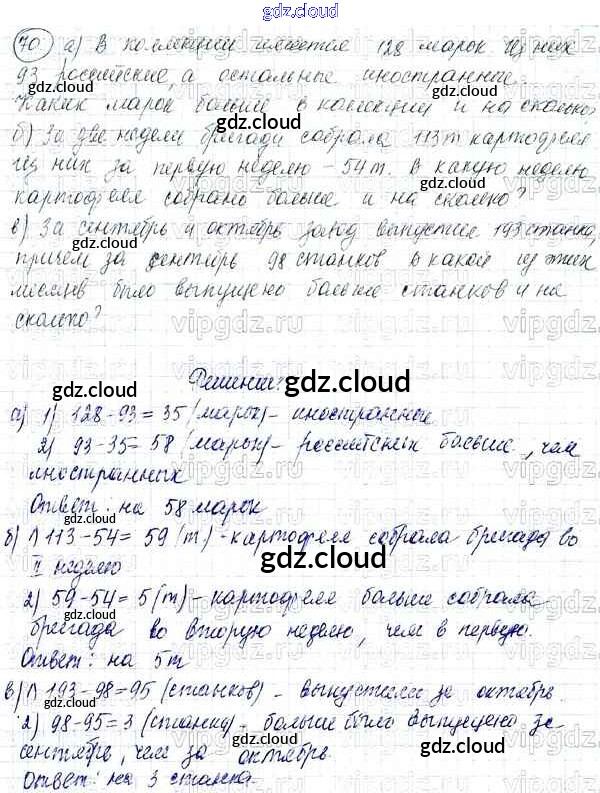 gdz.cloud
70. а) В коллекции имеется 128 марок Из них
gdz.cloud
93 российские, а остальные иностранные.
Каких марок больше в коллекции и на сколько
gdz.cloud
б) За две недели бригада собрала 113т картофеля
Из них за первую неделю - 54т. В какую неделю
картофеля собрано больше и на сколько?
gdz.cloud
в) За сентябрь и октябрь завод выпустил 193 станка,
gdz.cloud
причем за сентябрь 98 станков В какой из этих
месяцев было выпущено больше станков и на
сколько?
gdz.cloud
Решение:
gdz.cloud
а) 1) 128-93=35 (марок) - иностранные
2) 93-35=58 (марок) - российских больше, чем
gdz.cloud
иностранных
Ответ: на 58 марок
gdz.cloud
б) 1) 113-54=59 (т) - картофеля собрала бригада во
gdz.cloud
II неделю
2) 59-54=5 (т) - картофеля больше собрала
бригада во вторую неделю, чем в первую.
gdz.cloud
Ответ: на 5т
в) 1) 193-98=95 (станков) - выпустили за октябрь.
2) 98-95=3 (станка) - больше было выпущено за
сентябрь, чем за октябрь
gdz.cloud
Ответ: на 3 станка.
gdz.cloud